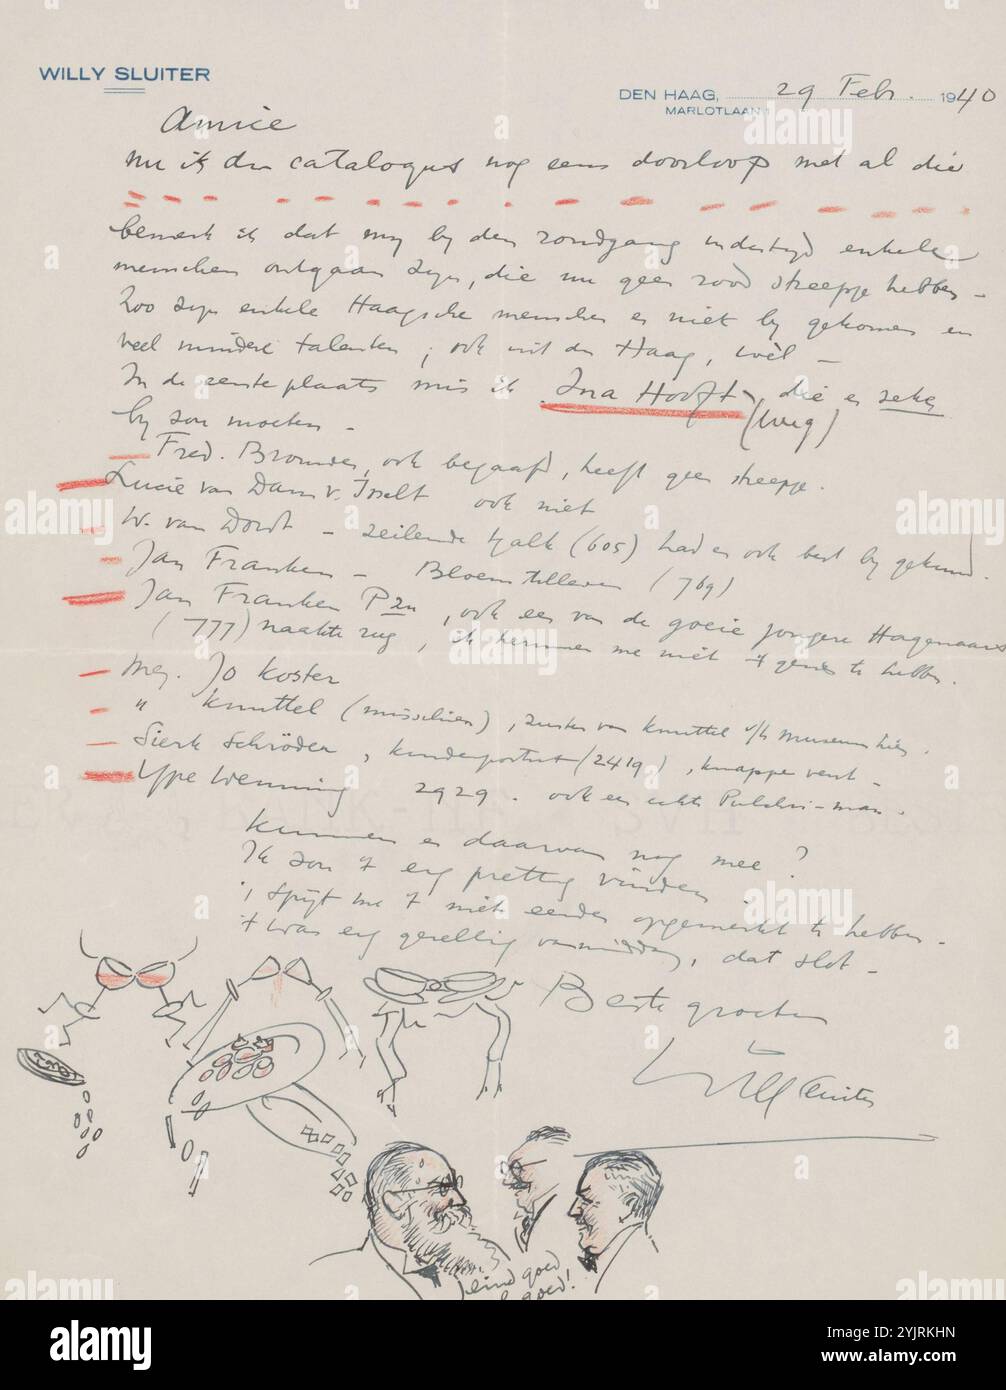 WILLY SLUITER
DEN HAAG, 29 Febr. 1940
MARLOTLAAN
Amice
nu ik den catalogus nog eens doorloop met al die
bemerk ik dat my by den rondgang indertyd enkele
menschen ontgaan zyn, die nu geen rood streepje hebben –
Zoo zyn enkele Haagsche menschen er niet by gekomen en
veel mindere talenten, ook uit den Haag, wèl –
In de eerste plaats mis ik Ina Hooft, die er zeker
(weg)
by zou moeten –
Fred. Bronner, ook begaafd, heeft geen streepje.
Lucie van Dam v. Isselt ook niet
W. van Dordt – zeilende tjalk (605) had er ook best by gekund.
Jan Franken – Bloemstilleven (769)
Jan Franken Pzn, ook een van de goeie jongere Hagenaars
(777) naakte rug, ik herinner me niet 't gezien te hebben.
Mej. Jo Koster
" Knuttel (misschien), zuster van Knuttel v/h Museum hier.
Sierk Schröder, kinderportret (2419), knappe vent –
Ype Wenning 2929. ook een echte Pulchri-man.
Kunnen er daarvan nog mee?
Ik zou 't erg prettig vinden
't spyt me 't niet eerder opgemerkt te hebben –
't was erg gezellig vanmiddag, dat slot –
Beste groeten
Willy Sluiter
eind goed
al goed!
alamy
Image ID: 2YJRKHN
www.alamy.com